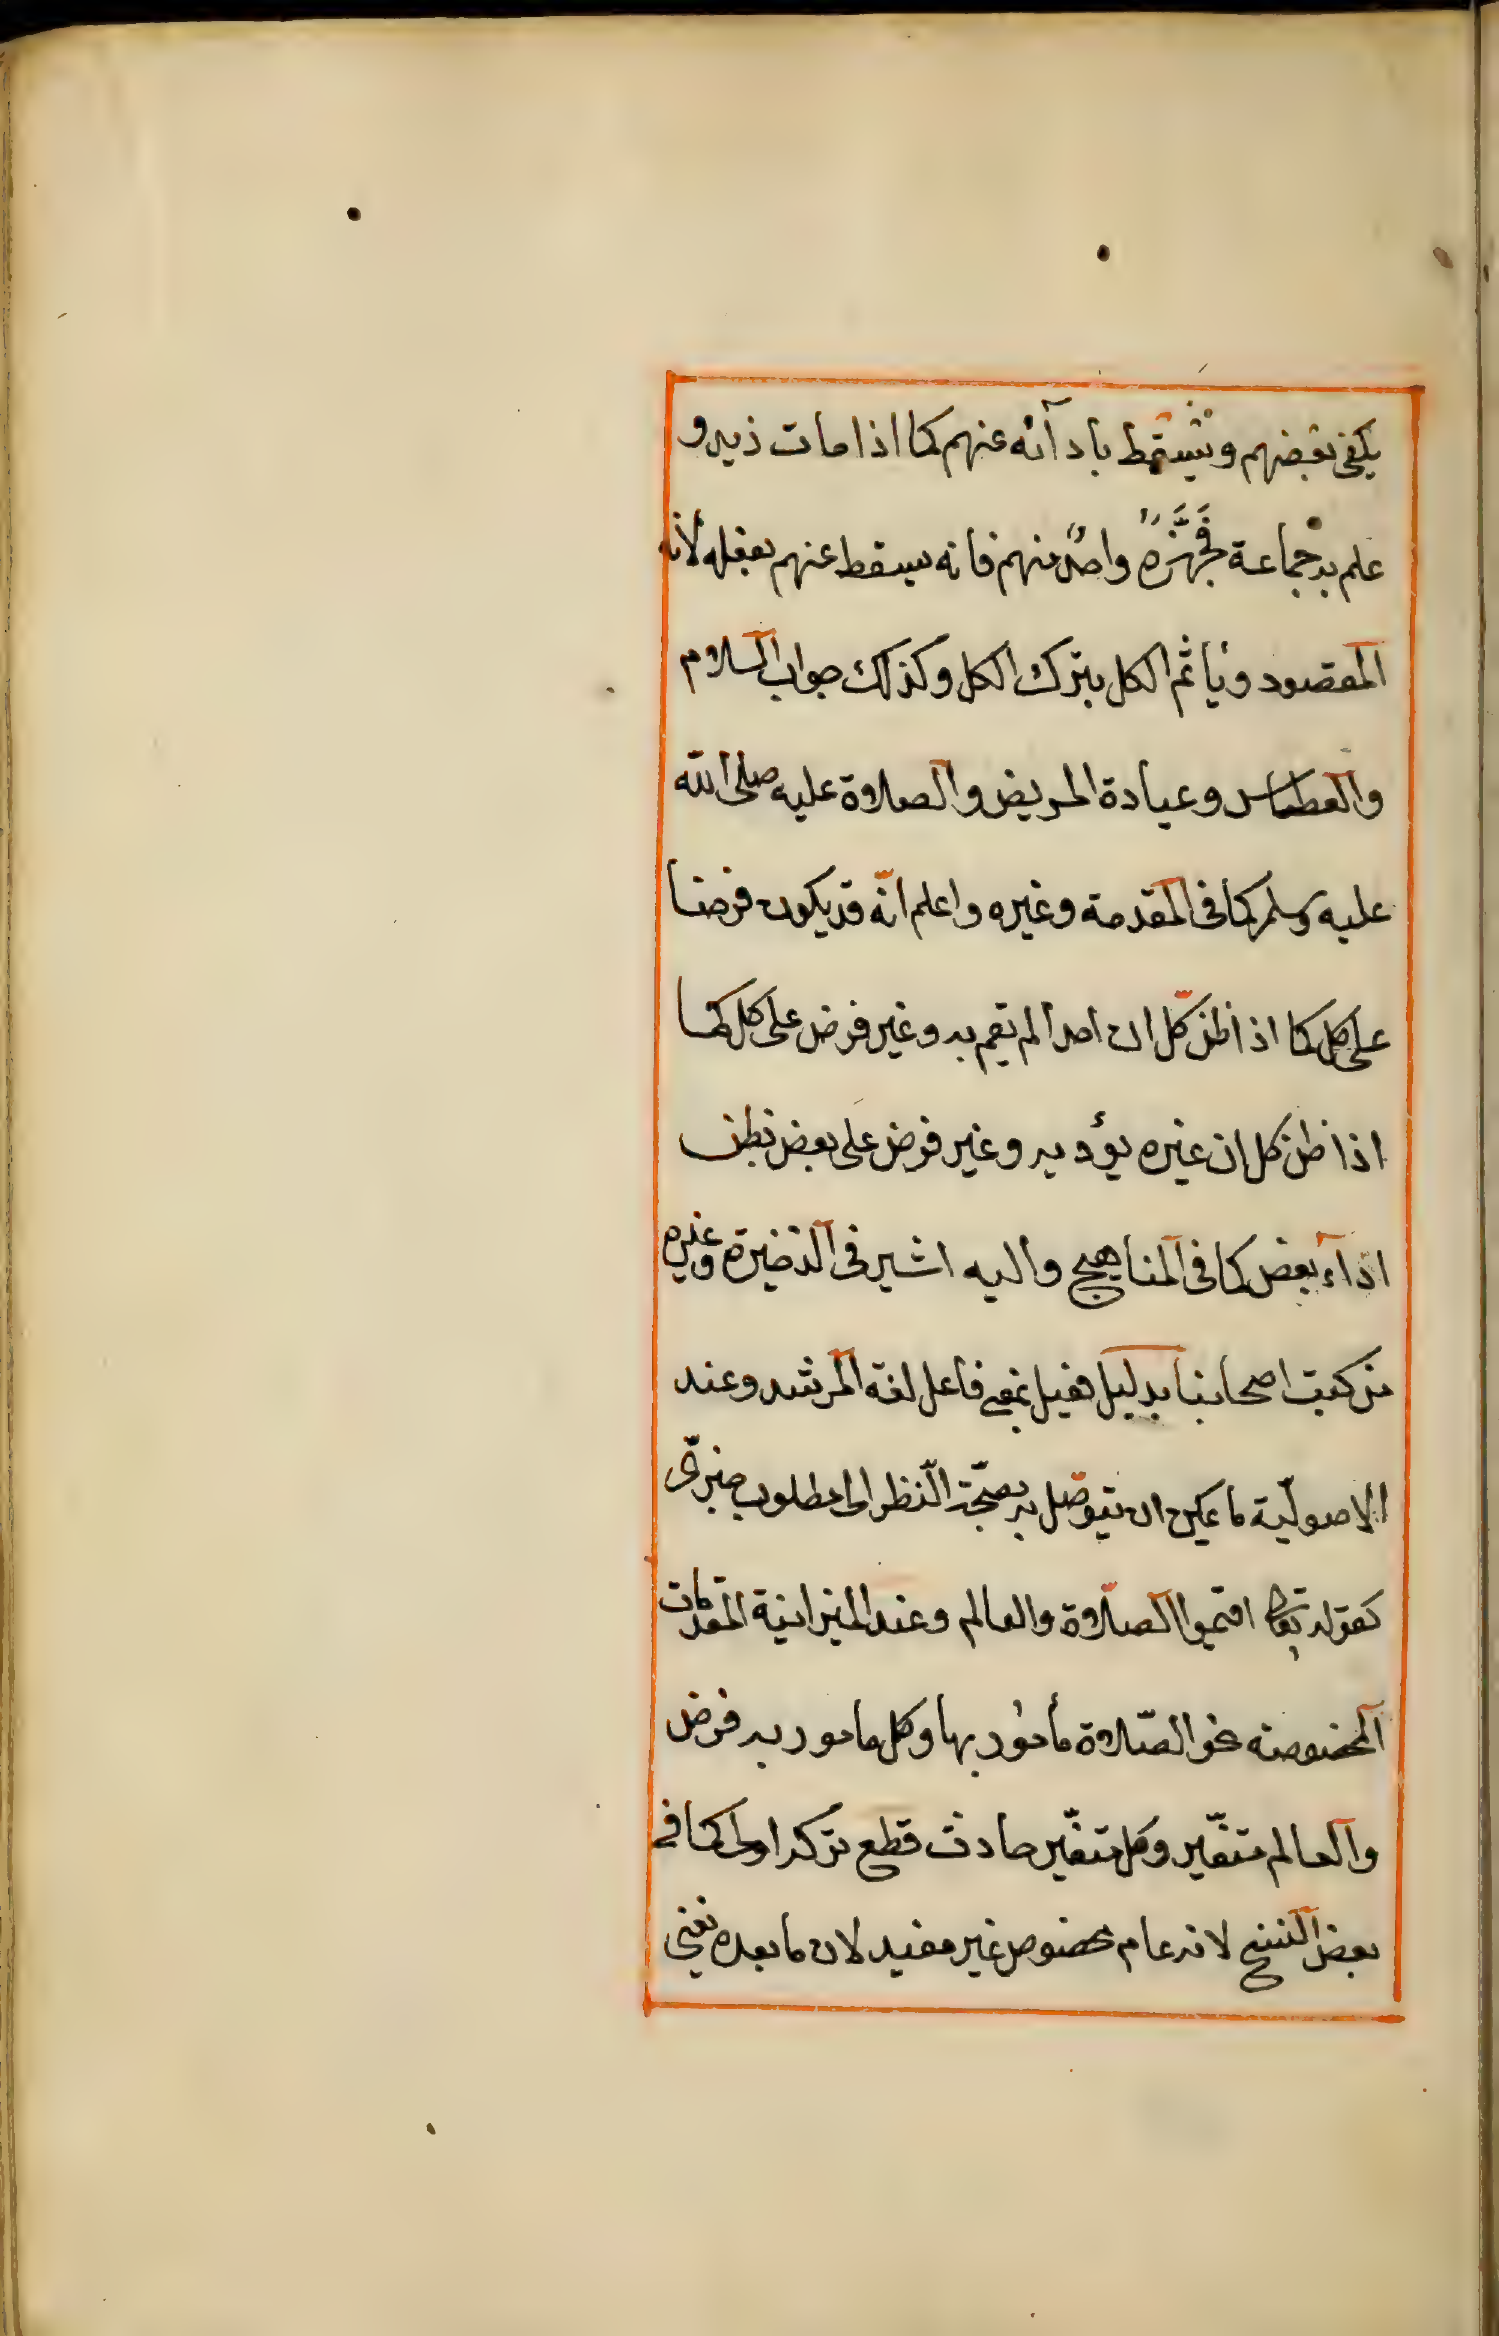 يكفى بعضهم ويسقط بادآئه عنهم كما اذا مات زيد و
علم به جماعة فَجَهَّزَهُ واحدٌ منهم فانه يسقط عنهم بفعله لأنه
المقصود ويأثم الكل بترك الكل وكذلك جواب السلام
والعطاس وعيادة المريض والصلاة عليه صلى الله
عليه وسلم كما فى المقدمة وغيره واعلم انّه قد يكون فرضا
على كل كما اذا ظن كلّ ان احدا لم يقم به وغير فرض على كل كما
اذا ظن كل ان غيره يؤديه وغير فرض على بعض بظن
ادآء بعض كما فى المناهيج واليه اشير فى الذخيرة وغيره
من كتب اصحابنا بدليل فعيل بمعنى فاعل لغة المرشد وعند
الاصوليّة ما يمكن ان يتوصّل به بصحّة النّظر الى مطلوب خبرىّ
كقوله تعالى اقيموا الصّلاة والعالم وعند الميزانية المقدمات
المخصوصة نحو الصّلاة مأمور بها وكل مامور به فرض
والعالم متغيّر وكل متغيّر حادث قطع تركه اولى كما فى
بعض النسخ لانه عام مخصوص غير مفيد لان ما بعده يغنى